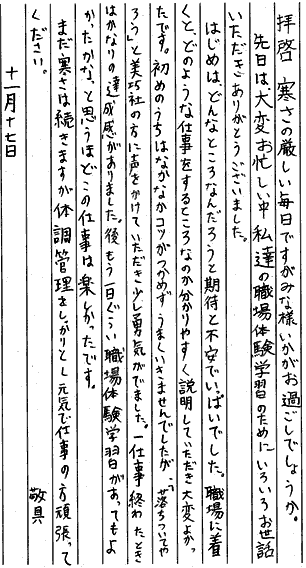 拝啓 寒さの厳しい毎日ですがみな様いかがお過ごしでしょうか。
先日は、大変お忙しい中 私達の職場体験学習のためにいろいろお世話
いただきありがとうございました。
はじめは、どんなところなんだろうと期待と不安でいっぱいでした。職場に着
くと、どのような仕事をするところなのか分かりやすく説明していただき大変よかっ
たです。初めのうちはなかなかコツがつかめずうまくいきませんでしたが、「落ちついてや
ろう」と美巧社の方に声をかけていただき少し勇気がでました。一仕事終わったとき
はかなりの達成感がありました。後もう一日ぐらい職場体験学習があってもよ
かったかな、と思うほどこの仕事は楽しかったです。
まだ寒さは続きますが体調管理をしっかりとし元気で仕事の方頑張って
ください。
敬具
十一月十七日